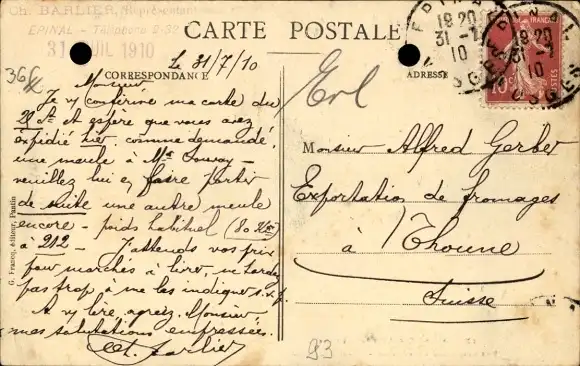 Ch. BARLIER, Représentant
EPINAL - Téléphone 9-32
31 JUIL 1910
CARTE POSTALE
Le 31/7/10
CORRESPONDANCE
ADRESSE
Monsieur
Je vs confirme ma carte du
28 ct & espère que vous avez
expédié hier, comme demandé,
une meule à Mr
veuillez lui en faire partir
de suite une autre meule
encore - poids habituel (80 Kos)
à 212 - J'attends vos prix
pour marchés à livrer, ne tardez
pas trop, à me les indiquer s.v.p.
A vs lire, agréez, Monsieur,
mes salutations empressées.
Ch. Barlier
Monsieur Alfred Gerber
Exportation de fromages
à Thoune
Suisse
G. Françq, éditeur, Pantin
EPINAL
18 20
31 -7
10
VOSGES
18 20
31 -7
10
10c
POSTES